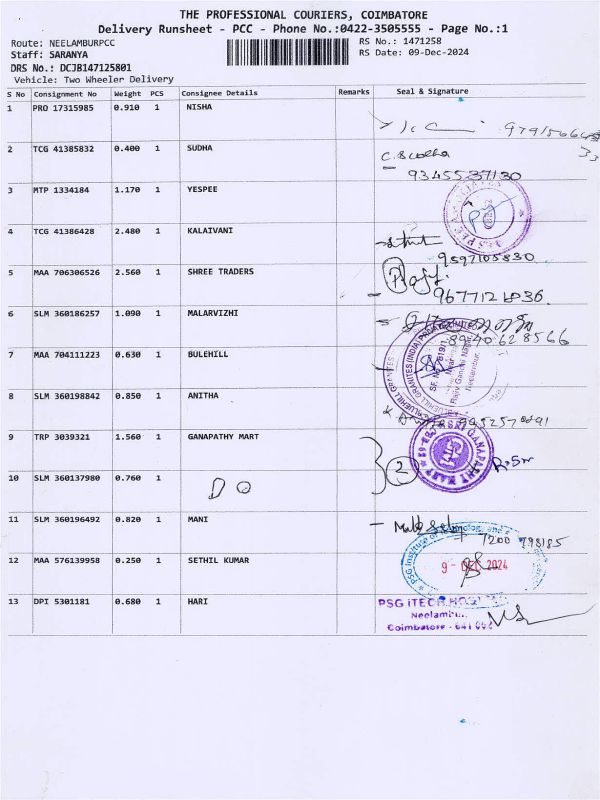 THE PROFESSIONAL COURIERS, COIMBATORE
Delivery Runsheet - PCC - Phone No.:0422-3505555 - Page No.:1
Route: NEELAMBURPCC
RS No.: 1471258
Staff: SARANYA
RS Date: 09-Dec-2024
DRS No.: DCJB147125801
Vehicle: Two Wheeler Delivery
S No Consignment No Weight PCS Consignee Details Remarks Seal & Signature
1 PRO 17315985 0.910 1 NISHA
2 TCG 41385832 0.400 1 SUDHA
9345537130
3 MTP 1334184 1.170 1 YESPEE
4 TCG 41386428 2.480 1 KALAIVANI
9597105830
5 MAA 706306526 2.560 1 SHREE TRADERS
6 SLM 360186257 1.090 1 MALARVIZHI
8940628566
7 MAA 704111223 0.630 1 BULEHILL
BLUEHILL GRANITES (INDIA) PRIVATE LIMITED
Rajiv Gandhi Nagar,
Neelambur,
8 SLM 360198842 0.850 1 ANITHA
9 TRP 3039321 1.560 1 GANAPATHY MART
2
10 SLM 360137980 0.760 1
D O
11 SLM 360196492 0.820 1 MANI
7200 798185
12 MAA 576139958 0.250 1 SETHIL KUMAR
PSG Institute of Technology and
9 - DEC 2024
13 DPI 5301181 0.680 1 HARI
PSG iTECH
Coimbatore - 641 062